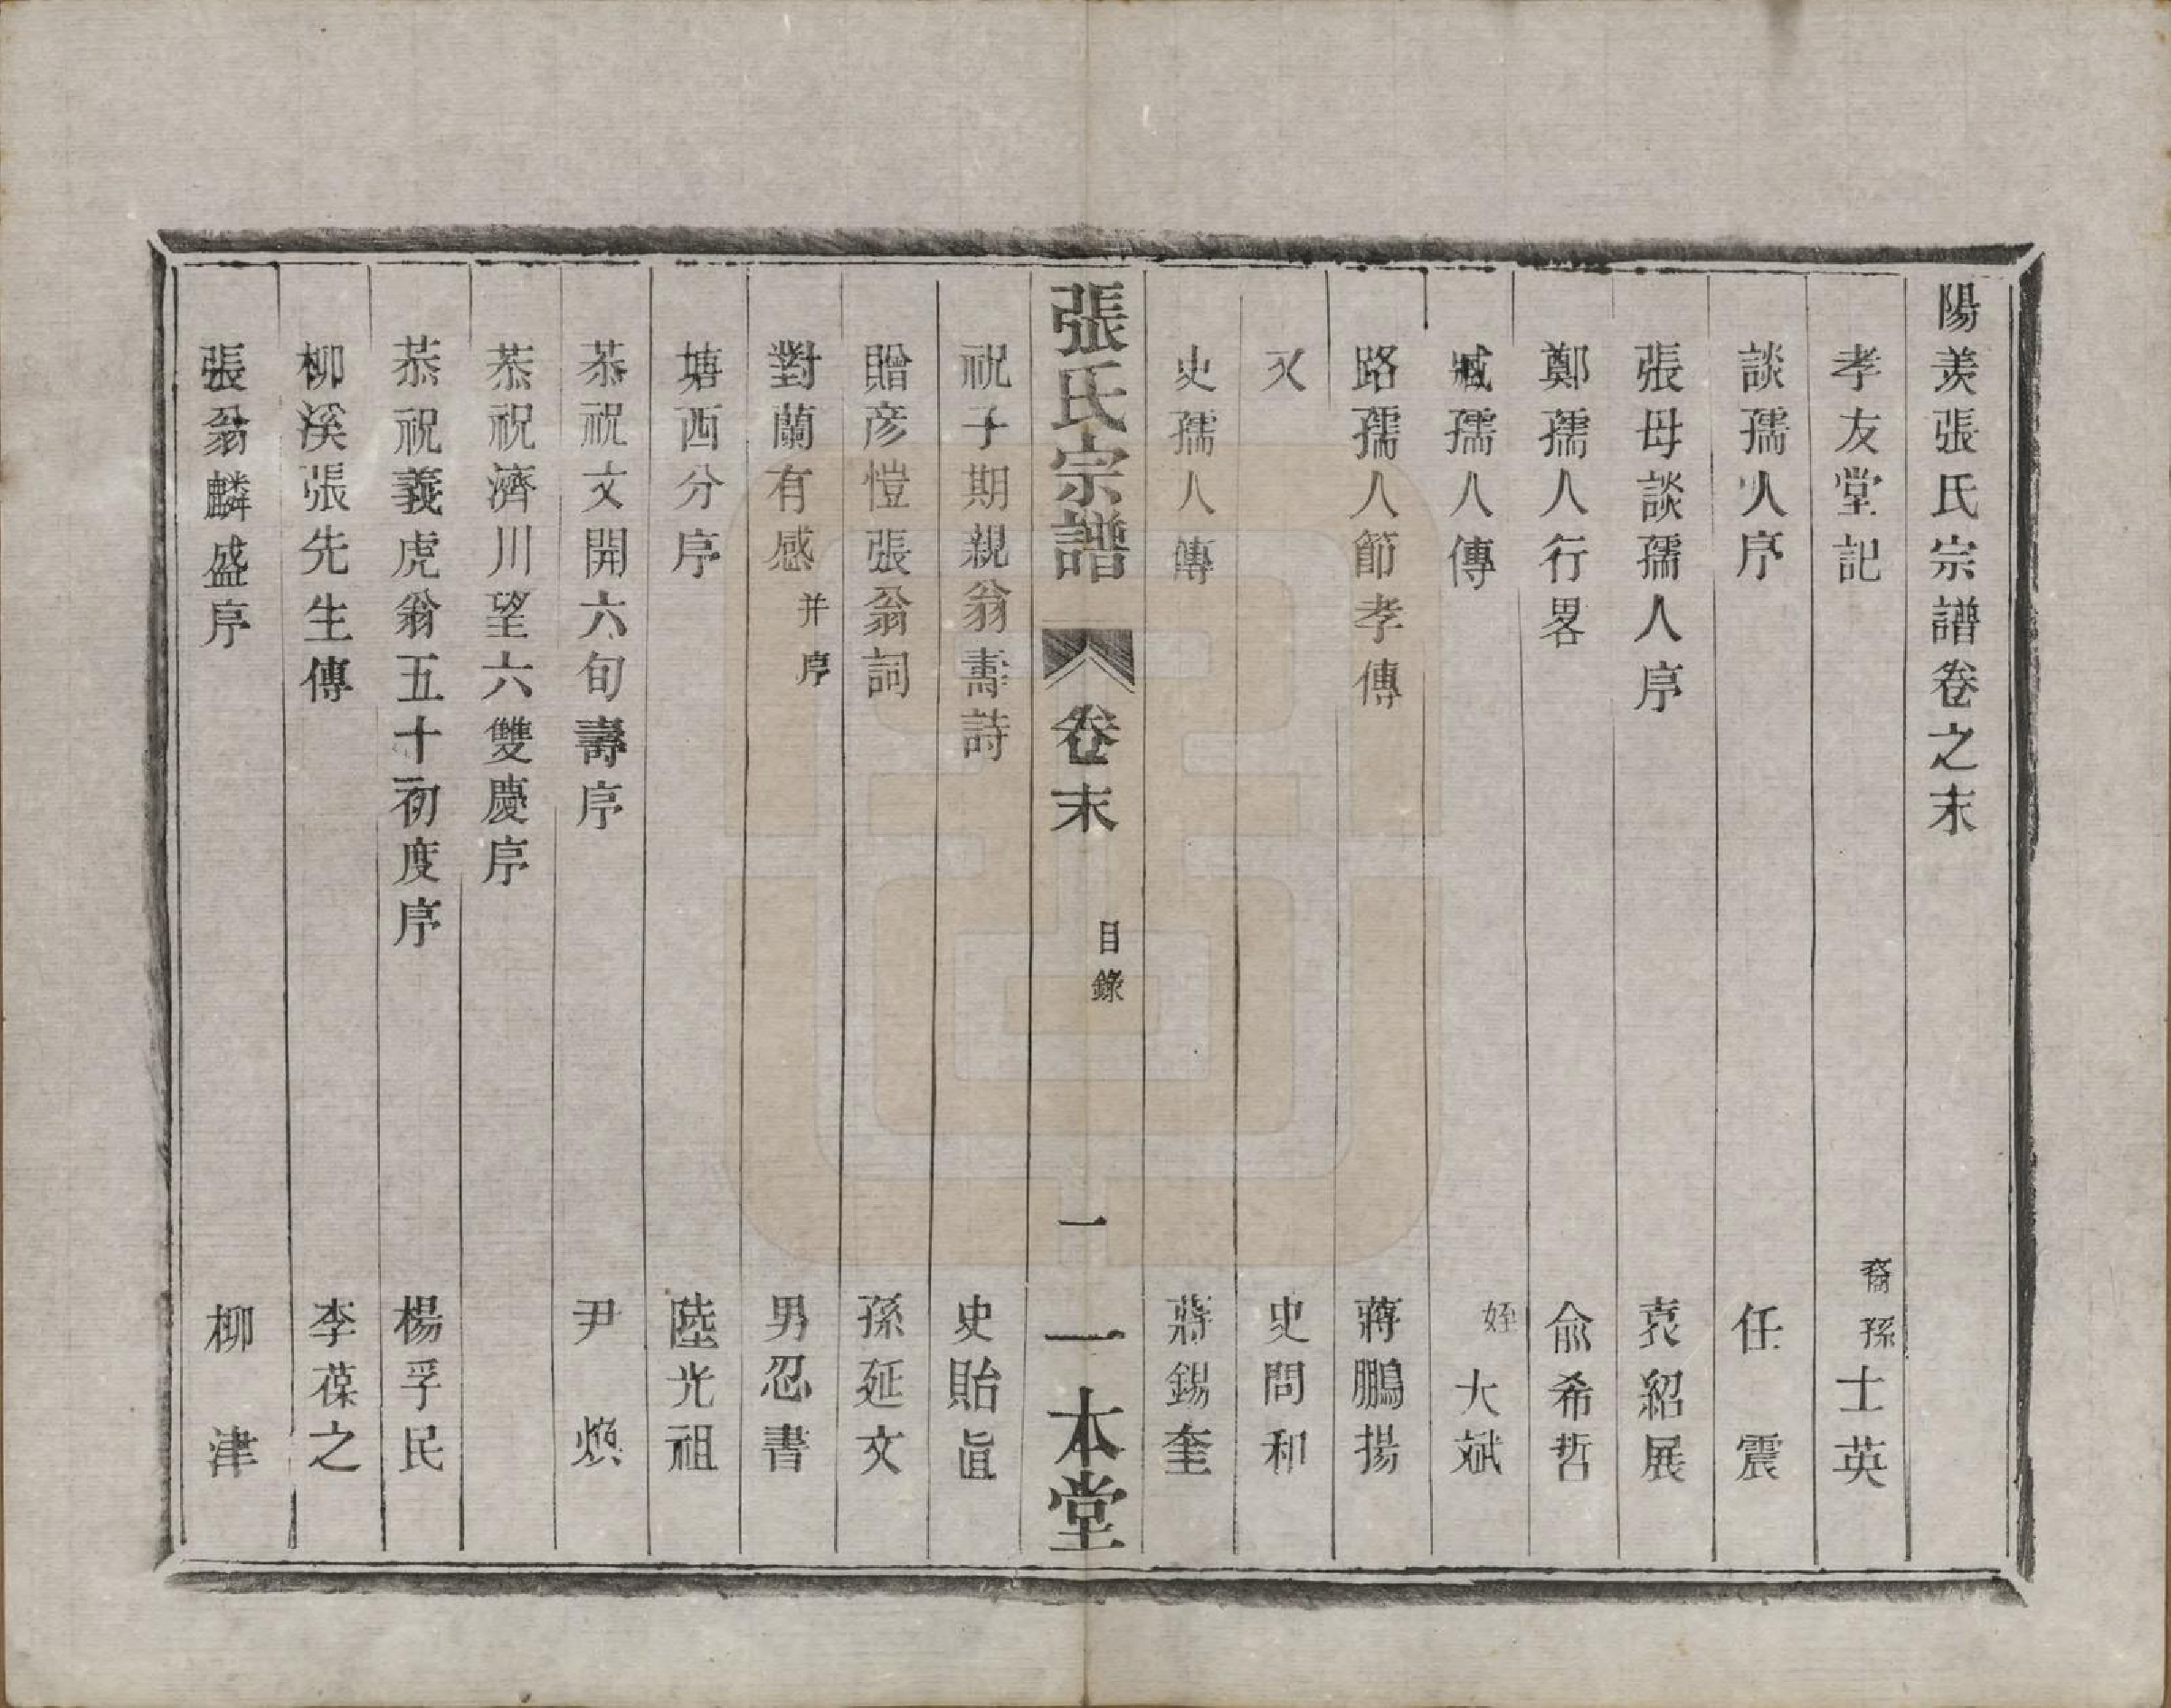 陽羨張氏宗譜卷之末
孝友堂記 裔孫士英
談孺人序 任震
張母談孺人序 袁紹展
鄭孺人行畧 俞希哲
臧孺人傳 姪大斌
路孺人節孝傳 蔣鵬揚
又 史問和
史孺人傳 蔣錫奎
張氏宗譜 卷末 目錄 一 一本堂
祝子期親翁壽詩 史貽眞
贈彦愷張翁詞 孫延文
對蘭有感并序 男忍書
塘西分序 陸光祖
恭祝文開六旬壽序 尹
恭祝濟川望六雙慶序
恭祝義虎翁五十初度序 楊孚民
柳溪張先生傳 李葆之
張翁麟盛序 柳津